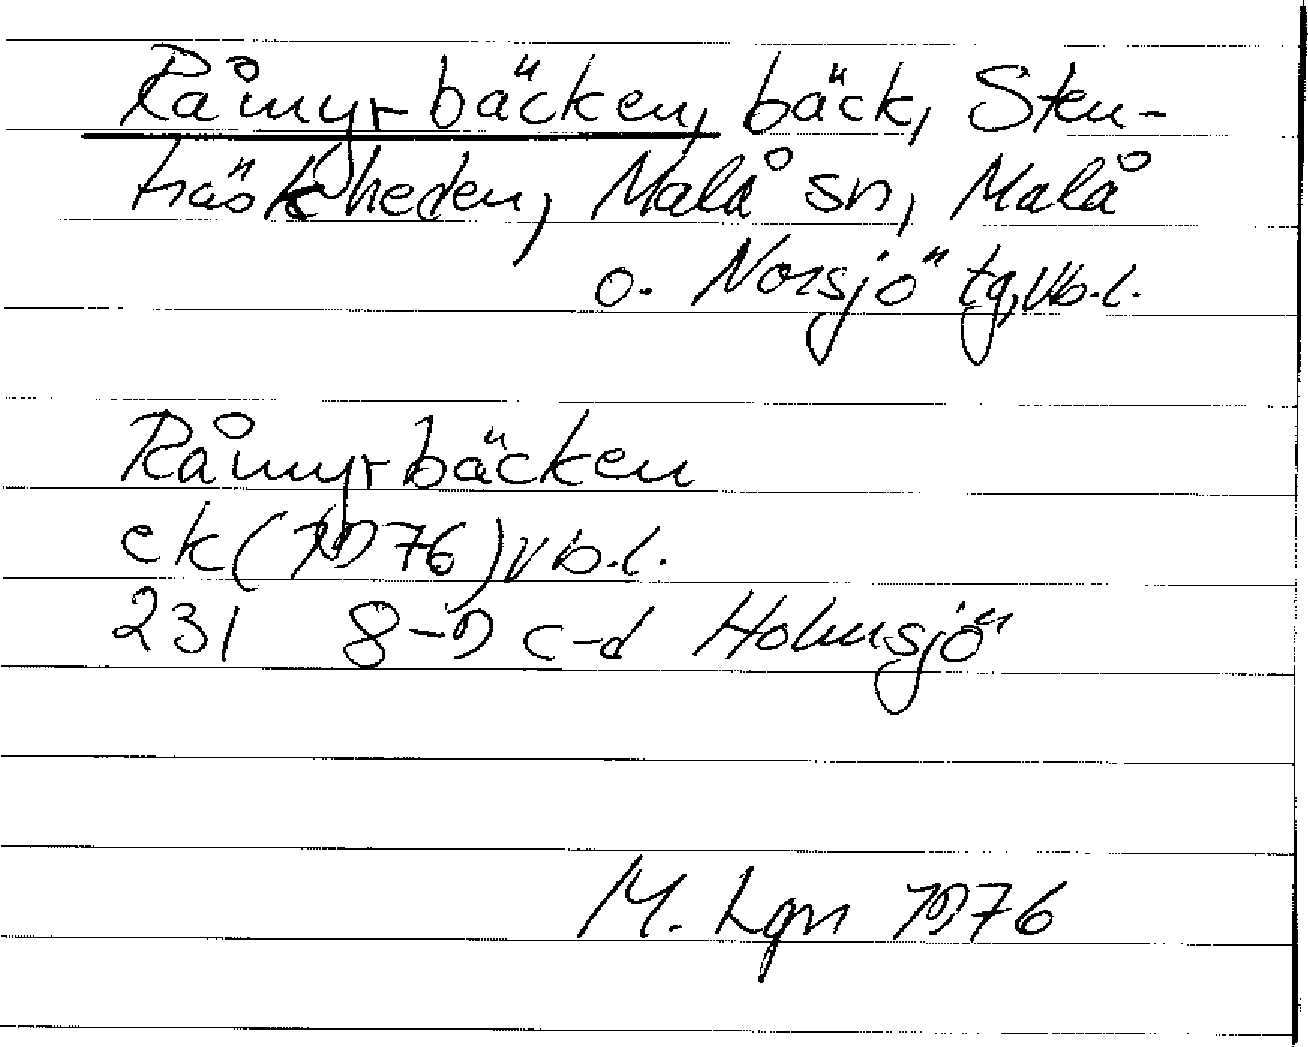 Råmyrbäcken, bäck, Sten-
träskheden, Malå sn, Malå
o. Norsjö tg, Vb.l.
Råmyrbäcken
ek (1976) Vb.l.
23I 8-9 c-d Holmsjö
M. Lgn 1976